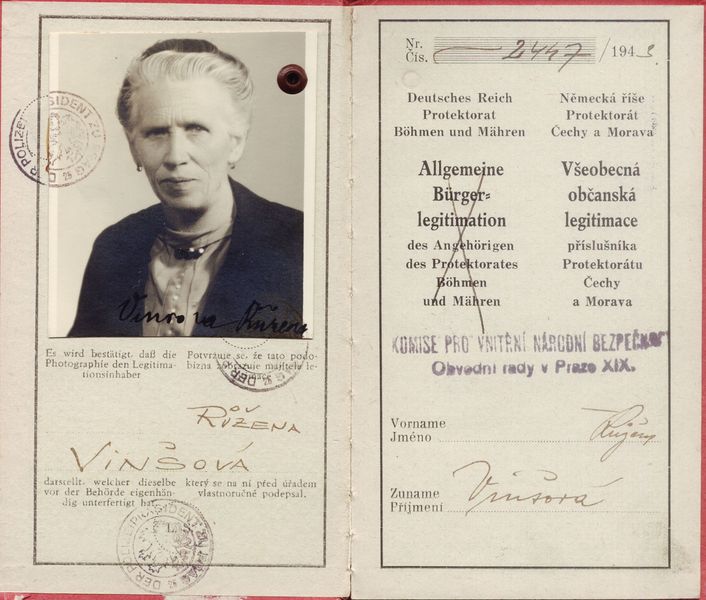 Vinšova Růžena
Es wird bestätigt, daß die
Photographie den Legitima-
tionsinhaber
Potvrzuje se, že tato podo-
bizna zobrazuje majitele le-
Růžena
Vinšová
darstellt, welcher dieselbe
vor der Behörde eigenhän-
dig unterfertigt hat.
který se na ní před úřadem
vlastnoručně podepsal.
Nr.
Čís. 2447 /1943
Deutsches Reich
Protektorat
Böhmen und Mähren
Německá říše
Protektorát
Čechy a Morava
Allgemeine
Bürger=
legitimation
des Angehörigen
des Protektorates
Böhmen
und Mähren
Všeobecná
občanská
legitimace
příslušníka
Protektorátu
Čechy
a Morava
KOMISE PRO VNITŘNÍ NÁRODNÍ BEZPEČNOST
Obvodní rady v Praze XIX.
Vorname
Jméno Růžena
Zuname
Příjmení Vinšová